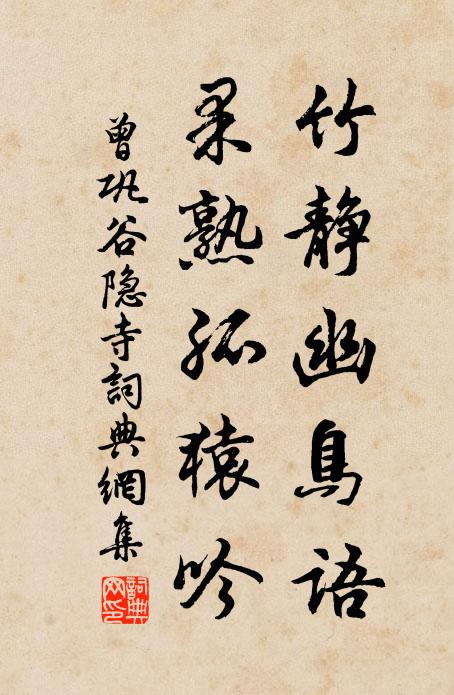 竹静幽鳥語
果熟孤猿吟
曾巩谷隐寺詞典網集
詞典網印